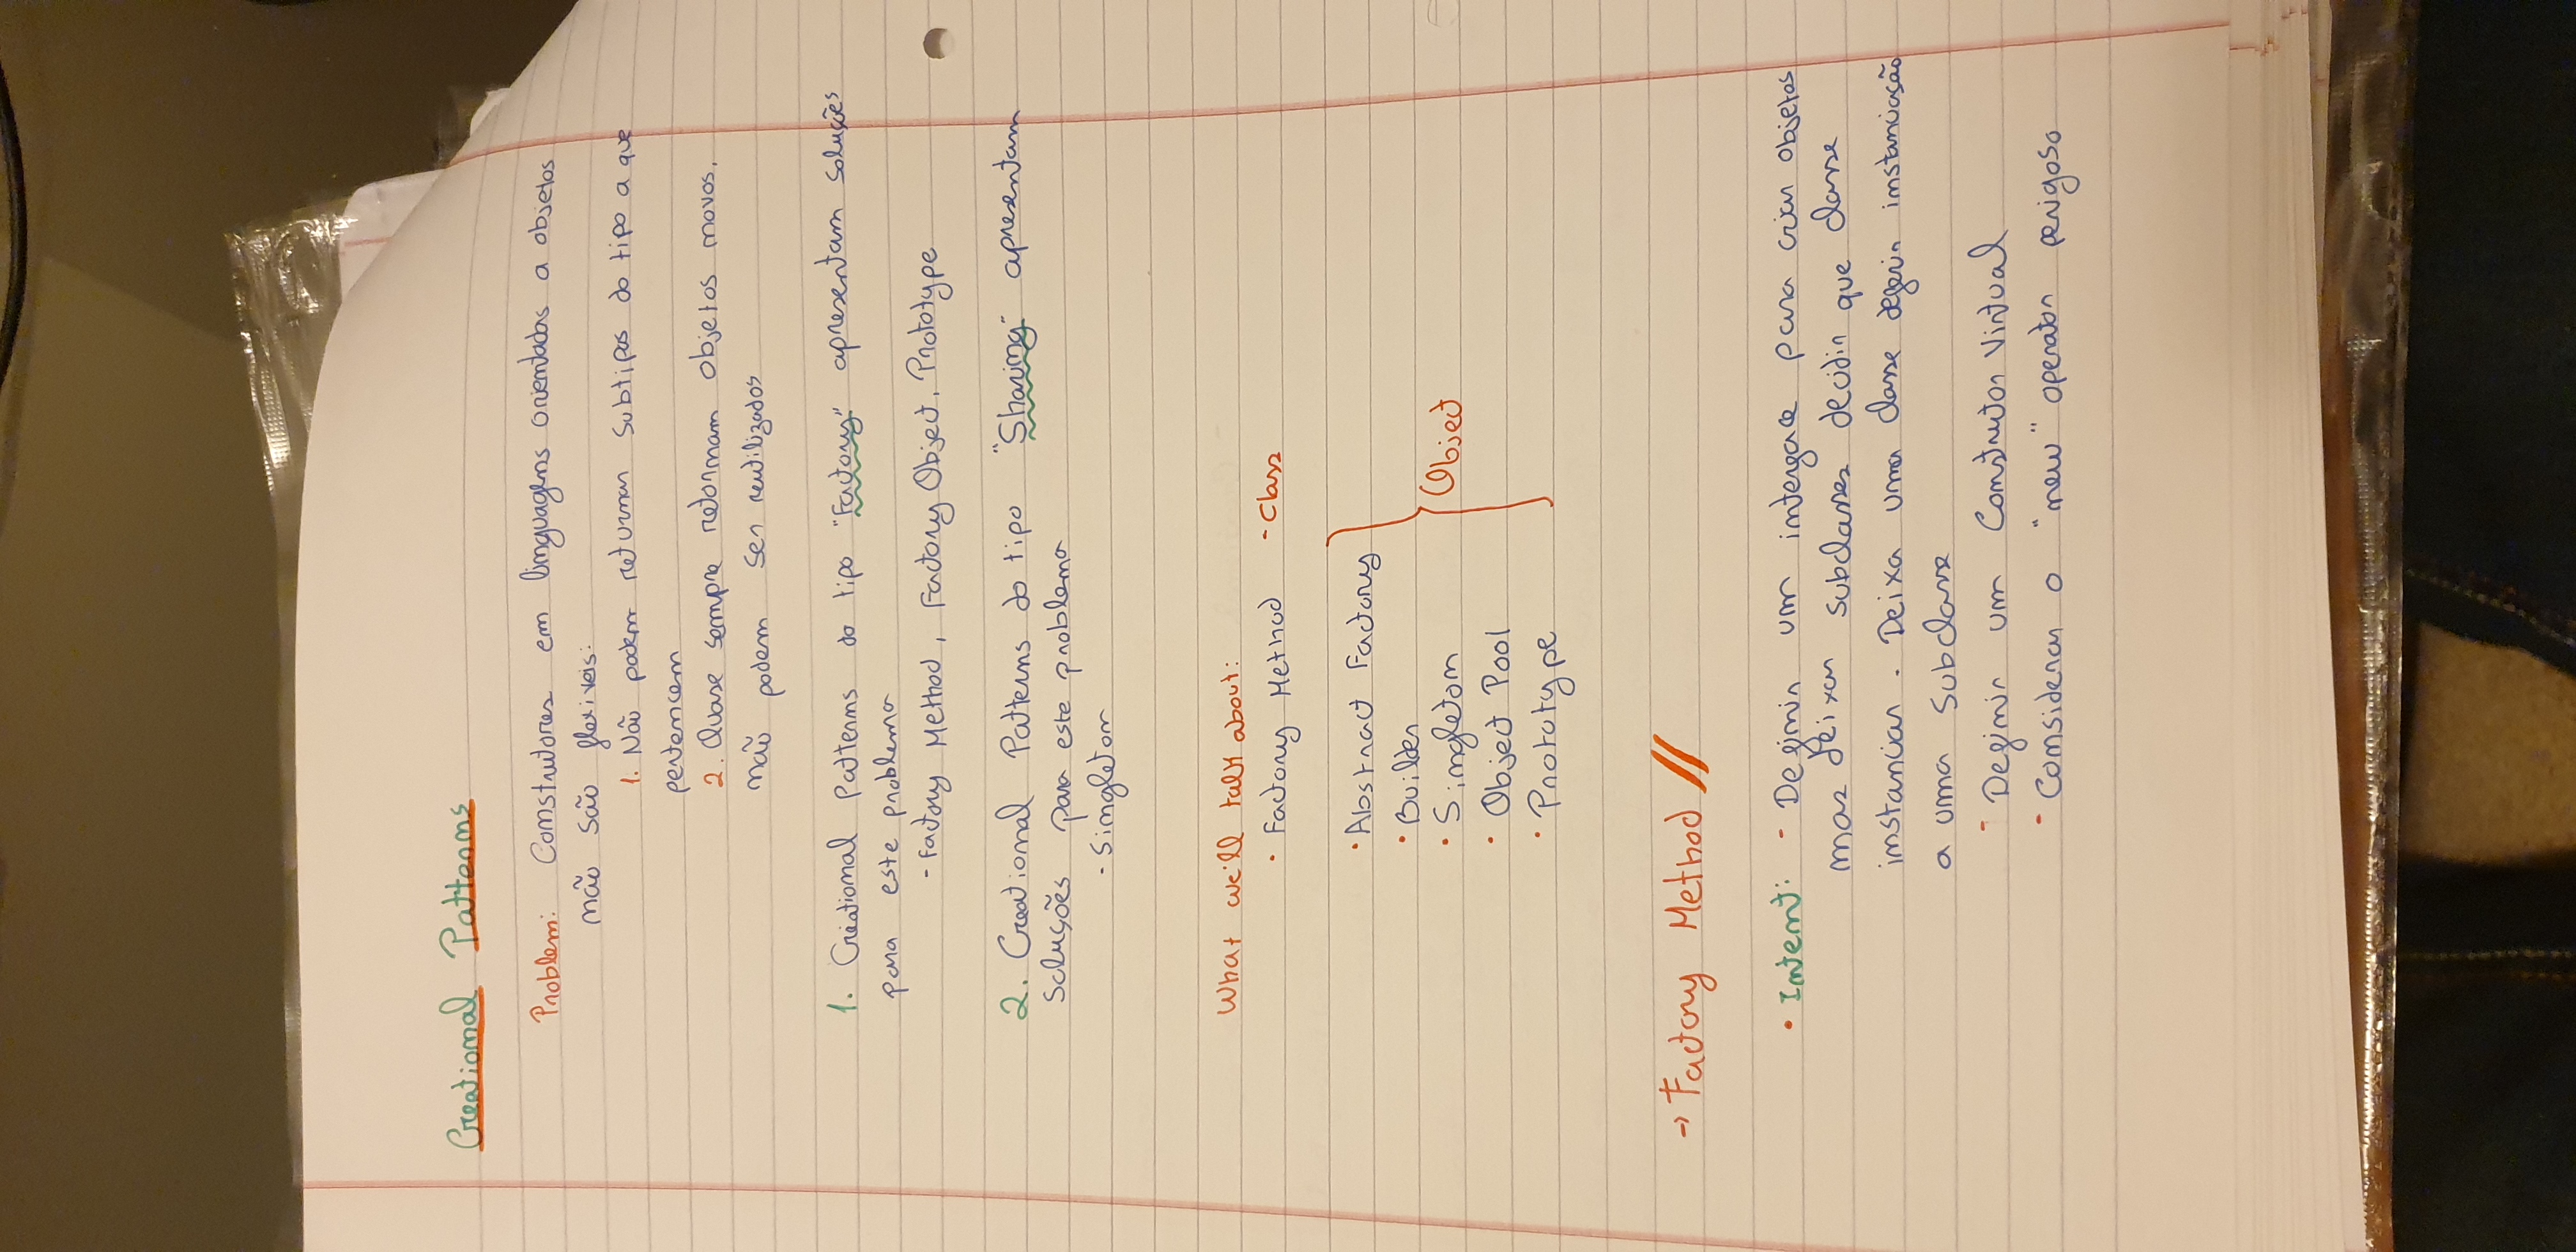 Creational Patterns
Problem: Construtores em linguagens orientadas a objetos
não são flexiveis:
1. Não podem returnar subtipos do tipo a que
pertencem
2. Quase sempre retornam objetos novos,
não podem ser reutilizados
1. Creational Patterns do tipo "Factory" apresentam soluções
para este problema
- Factory Method, Factory Object, Prototype
2. Creational Patterns do tipo "Sharing" apresentam
soluções para este problema
- Singleton
What we'll talk about:
• Factory Method - Class
• Abstract Factory
• Builder
• Singleton
Object
• Object Pool
• Prototype
→ Factory Method //
• Intent: - Definir um interface para criar objetos
mas deixar subclasses decidir que classe
instanciar. Deixa uma classe deferir instanciação
a uma subclasse
- Definir um Construtor Virtual
- Considerar o "new" operator perigoso